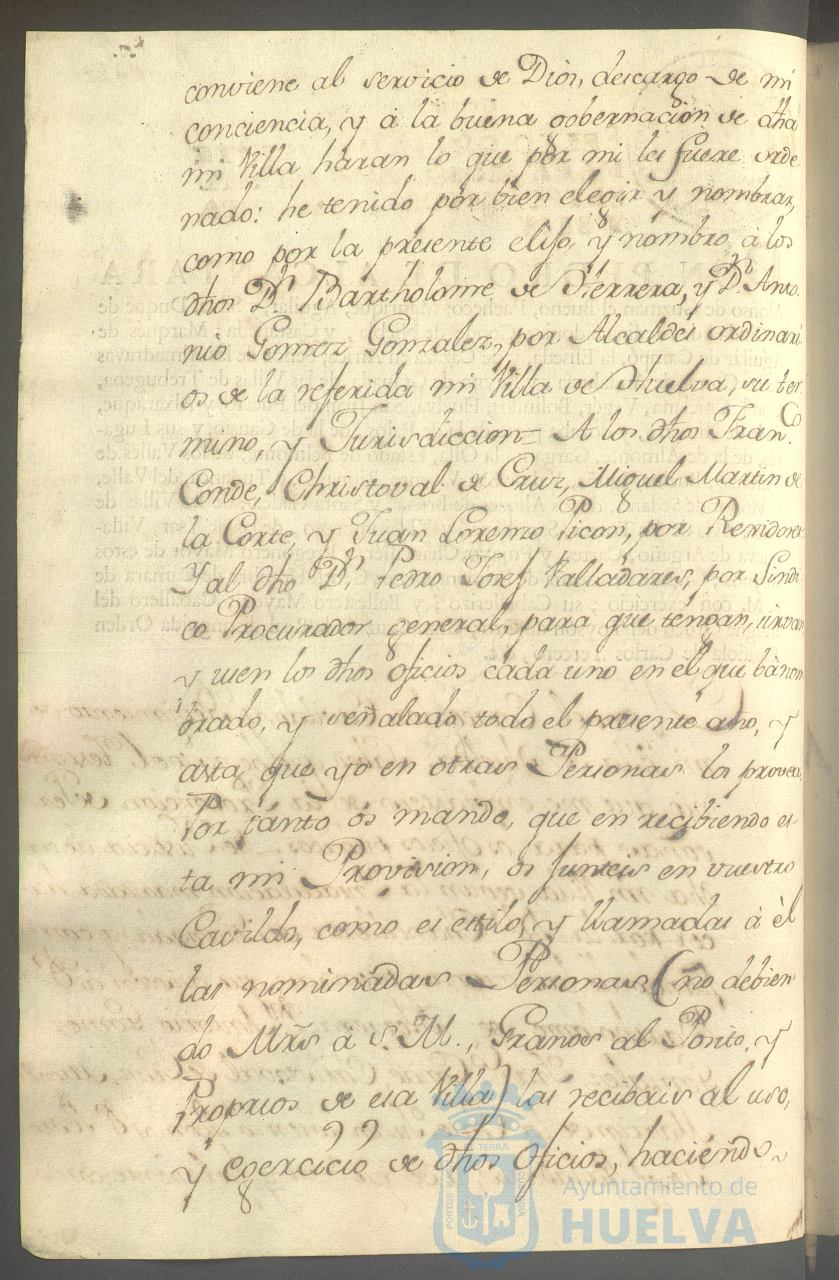 conviene al servicio de Dios, descargo de mi
conciencia, y à la buena gobernacion de dha
mi Villa haran lo que por mi les fuere orde
nado: he tenido por bien elegir y nombrar,
como por la presente elijo, y nombro à los
dhos Dn. Bartholome de Herrera, y Dn. Anto
nio Gomez Gonzalez, por Alcaldes ordinari
os de la referida mi Villa de Huelva, su ter
mino, y Jurisdiccion= A los dhos Fran.co
Conde, Christoval de Cruz, Miguel Martin de
la Corte, y Juan Lorenzo Picon, por Rexidores
Y al dho Dn. Pedro Josef Valladares, por Sindi
co Procurador general, para que tengan, sirvan,
y usen los dhos oficios cada uno en el que bà nom
brado, y señalado todo el presente año, y
asta que yo en otras Personas los provea.
Por tanto os mando, que en recibiendo es-
ta mi Provision, os Junteis en vuestro
Cavildo, como es estilo, y llamadas à èl
las nominadas Personas (no debien-
do Mrs à S. M., Granos al Posito, y
Proprios de esa Villa) las recibais al uso,
y exercicio de dhos Oficios, haciendo-
Ayuntamiento de
HUELVA